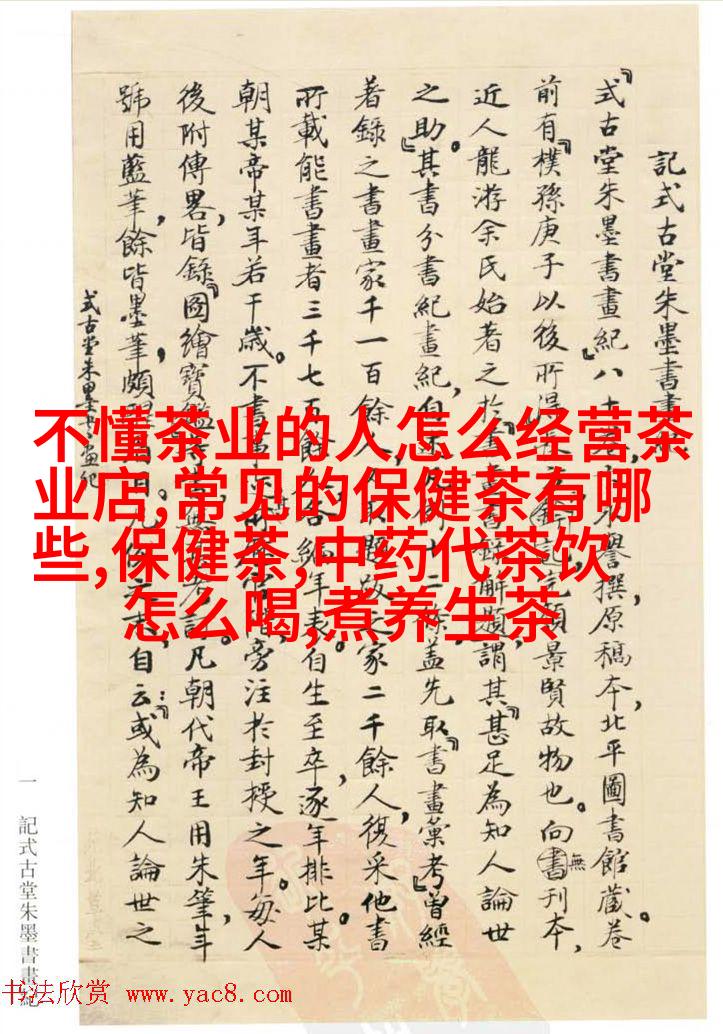 記式古堂朱墨書畫
『式古堂朱墨書畫紀』八十
譽撰原稿本,北平圖書館藏。卷
前有『樸孫庚子以後所得
景賢故物也。向無書刊本,
近人龍游余氏始著之於
解題』謂其『甚足為知人論世
之助』。其書分書紀畫紀,
蓋先取『書畫彙考』曾經
著錄之書畫家千一百餘人,
家二千餘人,復采他書
所載能書畫者三千七百餘
年表。自生至卒,逐年排比某
朝某帝某年若干歲。不書
旁注於封授之年。每人
後附傳畧,皆錄『圖繪寶鑑
凡朝代帝王用朱筆,年
號用藍筆,餘皆墨筆,頗
自云:或為知人論世之
式古堂朱墨書畫紀
一 記式古堂朱墨書畫紀
不懂茶业的人怎么经营茶
业店,常见的保健茶有哪
些,保健茶,中药代茶饮
怎么喝,煮养生茶
书法欣赏 www.yac8.com